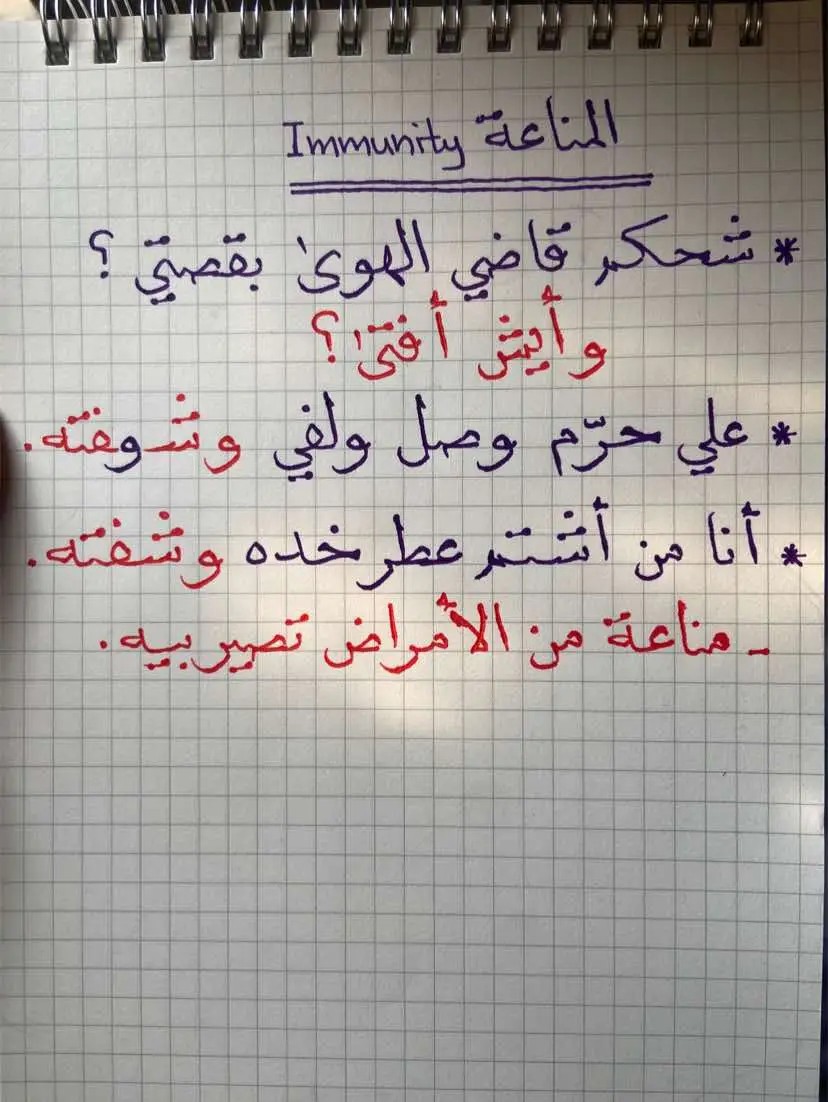 المناعة Immunity
* شحكم قاضي الهوىٰ بقصتي ؟
وأيش أفتىٰ ؟
* علي حرّم وصل ولفي وشوفته.
* أنا من أشتم عطر خده وشفته.
- مناعة من الأمراض تصير بيه.